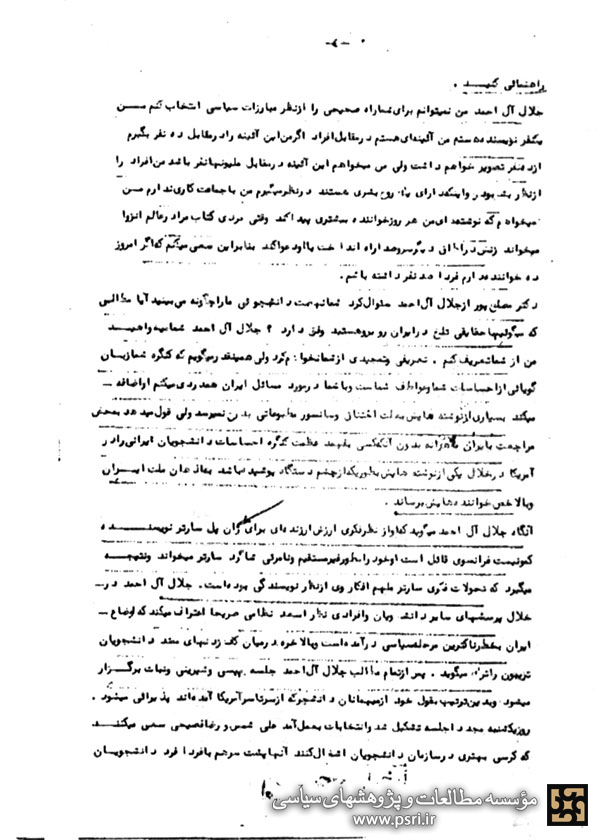 راهنمائی کنید .
جلال آل احمد من نمیتوانم برای شما راه صحیحی را از نظر مبارزات سیاسی انتخاب کنم من
یکنفر نویسنده هستم من آئینه‌ای هستم در مقابل افراد اگر من این آئینه را در مقابل ده نفر بگیرم
از ده نفر تصویر خواهم داشت ولی من میخواهم این آئینه در مقابل ملیونها نفر باشد من افراد را
از نظر بودن و اینکه دارای روح بشری هستند در نظر میگیرم من با جماعت کاری ندارم من
میخواهم که نوشته‌های من هر روز خواننده بیشتری پیدا کند وقتی مردی کتاب مرا در عالم انزوا
میخواند زنش در اطاق دیگر سر و صدا راه انداخت یا او دعوا کند بنابراین سعی میکنم که اگر امروز
ده خواننده دارم فردا صد نفر داشته باشم .
دکتر مصلح پور از جلال آل احمد سئوال کرد شما نهضت دانشجوئی ما را چگونه می‌بینید آیا مطالبی
که میگوئیم با حقایقی تلخ در ایران روبرو هستید وفق دارد ؟ جلال آل احمد شما میخواهید
من از شما تعریف کنم . تعریفی و تمجیدی از شما نخواهم کرد ولی همینقدر میگویم که کنگره شما زبان
گویائی از احساسات شما و عواطف شماست و با شما در مورد مسائل ایران همدردی میکنم او اضافه
میکند بسیاری از نوشته هایش بعلت اختناق و سانسور مطبوعاتی بمن نمیرسد ولی قول میدهد بمحض
مراجعت بایران بدون آنکه کسی بفهمد عظمت کنگره احساسات دانشجویان ایرانی را در
آمریکا در خلال یکی از نوشته هایش بطوریکه از چشم دستگاه پوشیده باشد بملت ایران
وبالاخص خواننده هایش برساند .
آنگاه جلال آل احمد میگوید که او از نظر فکری ارزش ارزنده‌ای برای ژان پل سارتر نویسنده
کمونیست فرانسوی قائل است او خود را بطور غیر مستقیم و نامرئی شاگرد سارتر میخواند و نتیجه
میگیرد که تحولات فکری سارتر ملهم افکار وی از نظر نویسندگی بوده است. جلال آل احمد در
خلال پرسشهای سایر دانشجویان و افرادی نظیر اسعد نظامی صریحا اعتراف میکند که اوضاع
ایران بخطرناکترین مرحله سیاسی درآمده است وبالاخره در میان کف زدنهای ممتد دانشجویان
تریبون را ترک میگوید . پس از اتمام مطالب جلال آل احمد جلسه پپسی و شیرینی و نبات برگزار
میشود و بدین ترتیب بقول خود از میهمانان و دانشجو که از سرتاسر آمریکا آمده‌اند پذیرائی میشود .
روز یکشنبه مجددا جلسه تشکیل شد و انتخابات بعمل آمد علی شمس و رضا فصیحی سعی میکنند
که کرسی بهتری در سازمان دانشجویان اشغال کنند آنها پشت سر هم با فرد فرد دانشجویان
مؤسسه مطالعات و پژوهشهای سیاسی
www.psri.ir